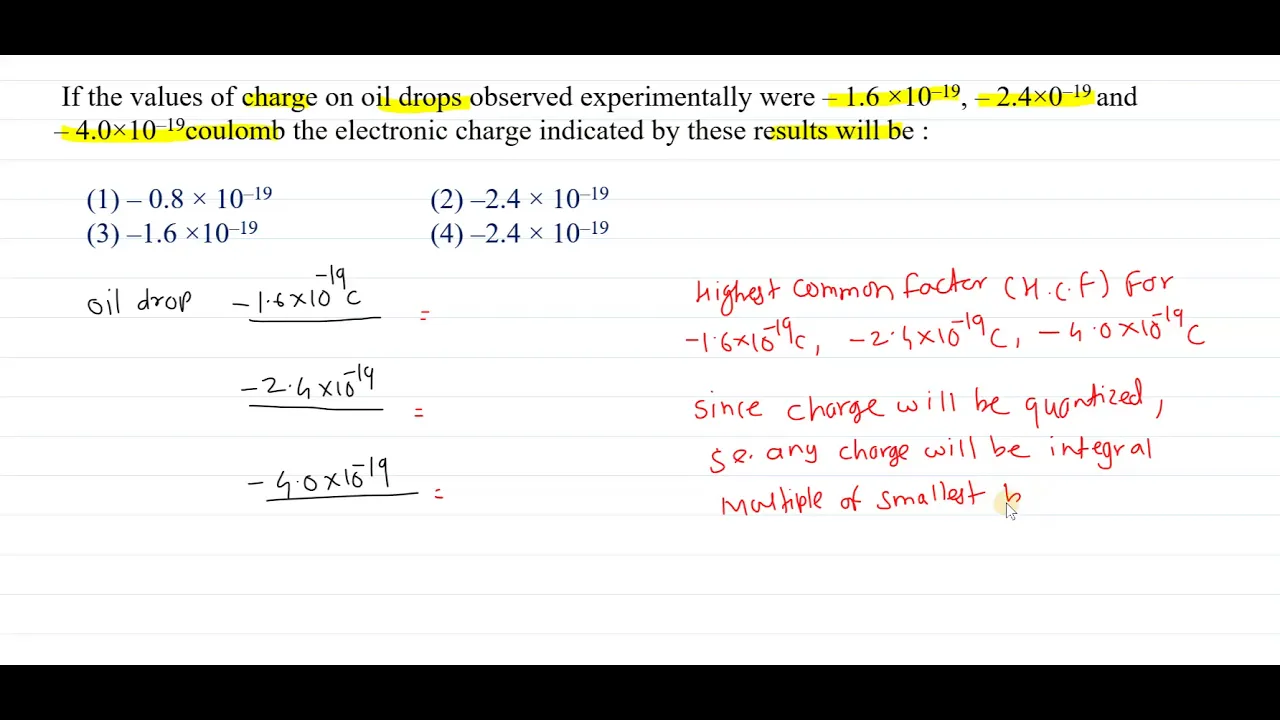 If the values of charge on oil drops observed experimentally were – 1.6 ×10⁻¹⁹, – 2.4×0⁻¹⁹ and
– 4.0×10⁻¹⁹coulomb the electronic charge indicated by these results will be :
(1) – 0.8 × 10⁻¹⁹ (2) –2.4 × 10⁻¹⁹
(3) –1.6 ×10⁻¹⁹ (4) –2.4 × 10⁻¹⁹
oil drop -1.6×10⁻¹⁹C =
-2.4×10⁻¹⁹ =
-4.0×10⁻¹⁹ =
Highest common factor (H.C.F) For
-1.6×10⁻¹⁹C, -2.4×10⁻¹⁹C, -4.0×10⁻¹⁹C
since charge will be quantized,
any charge will be integral
Multiple of smallest